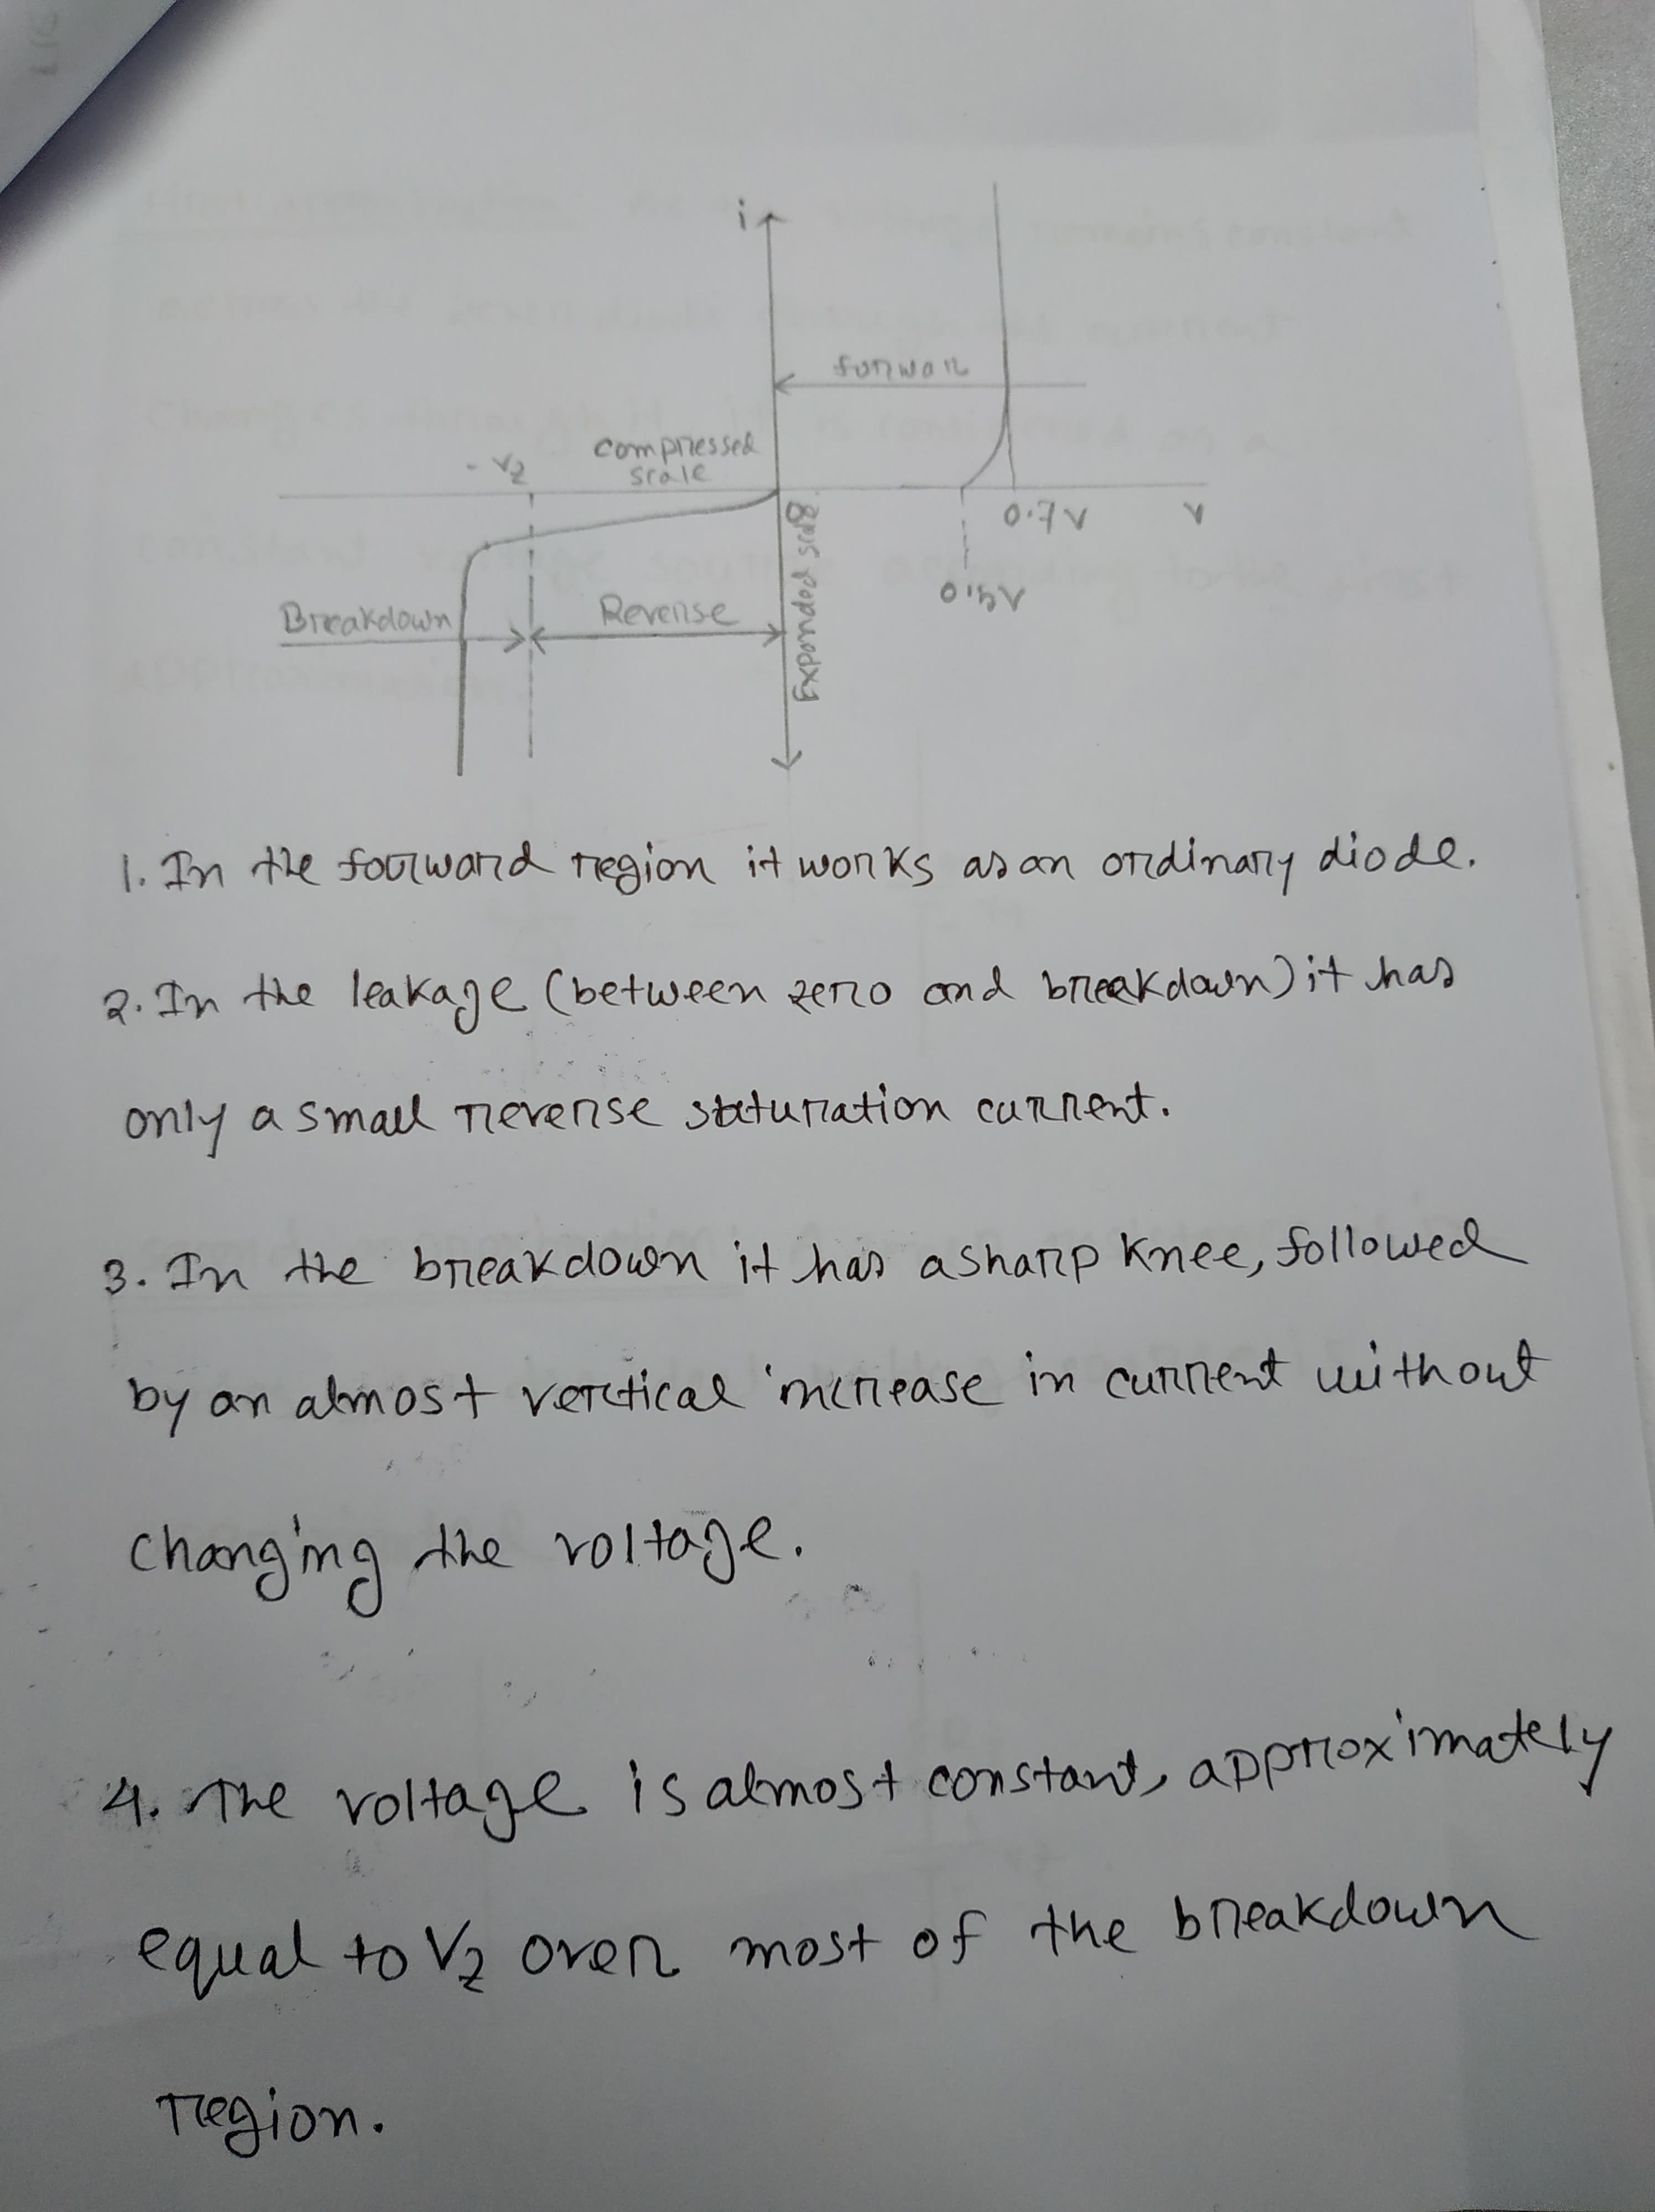 i
forwar
compressed
scale
- Vz
0.7V
V
0.5V
Expanded scale
Breakdown
Reverse
1. In the forward region it works as an ordinary diode.
2. In the leakage (between zero and breakdown) it has
only a small reverse saturation current.
3. In the breakdown it has a sharp knee, followed
by an almost vertical increase in current without
changing the voltage.
4. The voltage is almost constant, approximately
equal to Vz over most of the breakdown
region.